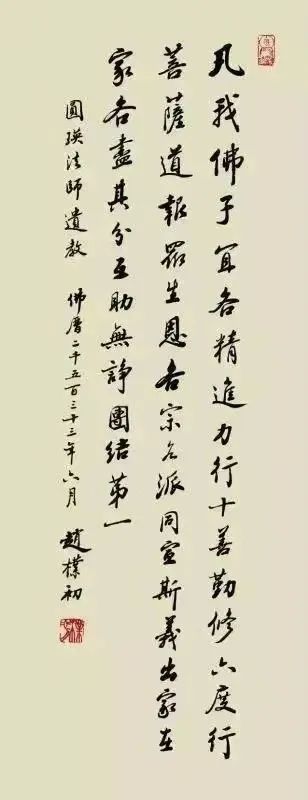 凡我佛子宜各精進力行十善勤修六度行
菩薩道報眾生恩各宗各派同宣斯義出家在
家各盡其分互助無諍團結第一
圓瑛法師遺教 佛曆二千五百三十三年六月 趙樸初